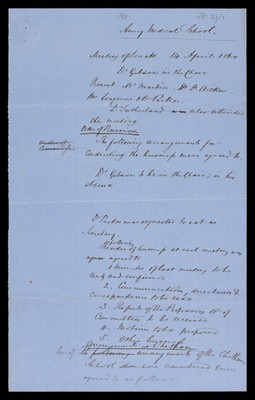 Army Medical School.
Meeting of Senate 14 April 1860
Dr Gibson in the Chair
Present Mr Martin Dr Aitken
Mr Longmore & Dr Parkes.
Dr Sutherland also attended
the meeting.
Order of Business
The following arrangements for
conducting the business were agreed to.
Dr Gibson to be in the Chair; in his
absence
Dr Parkes was requested to act as
Secretary
following
order of business at each meeting was
agreed to
1 Minutes of last meeting to be
read and confirmed
2. Communications, and
correspondence to be read
3. Reports of the Professors or of
Committees to be received
4. Motions to be proposed
5. Other business
arrangements of the
School then were considered &
agreed to as follows.